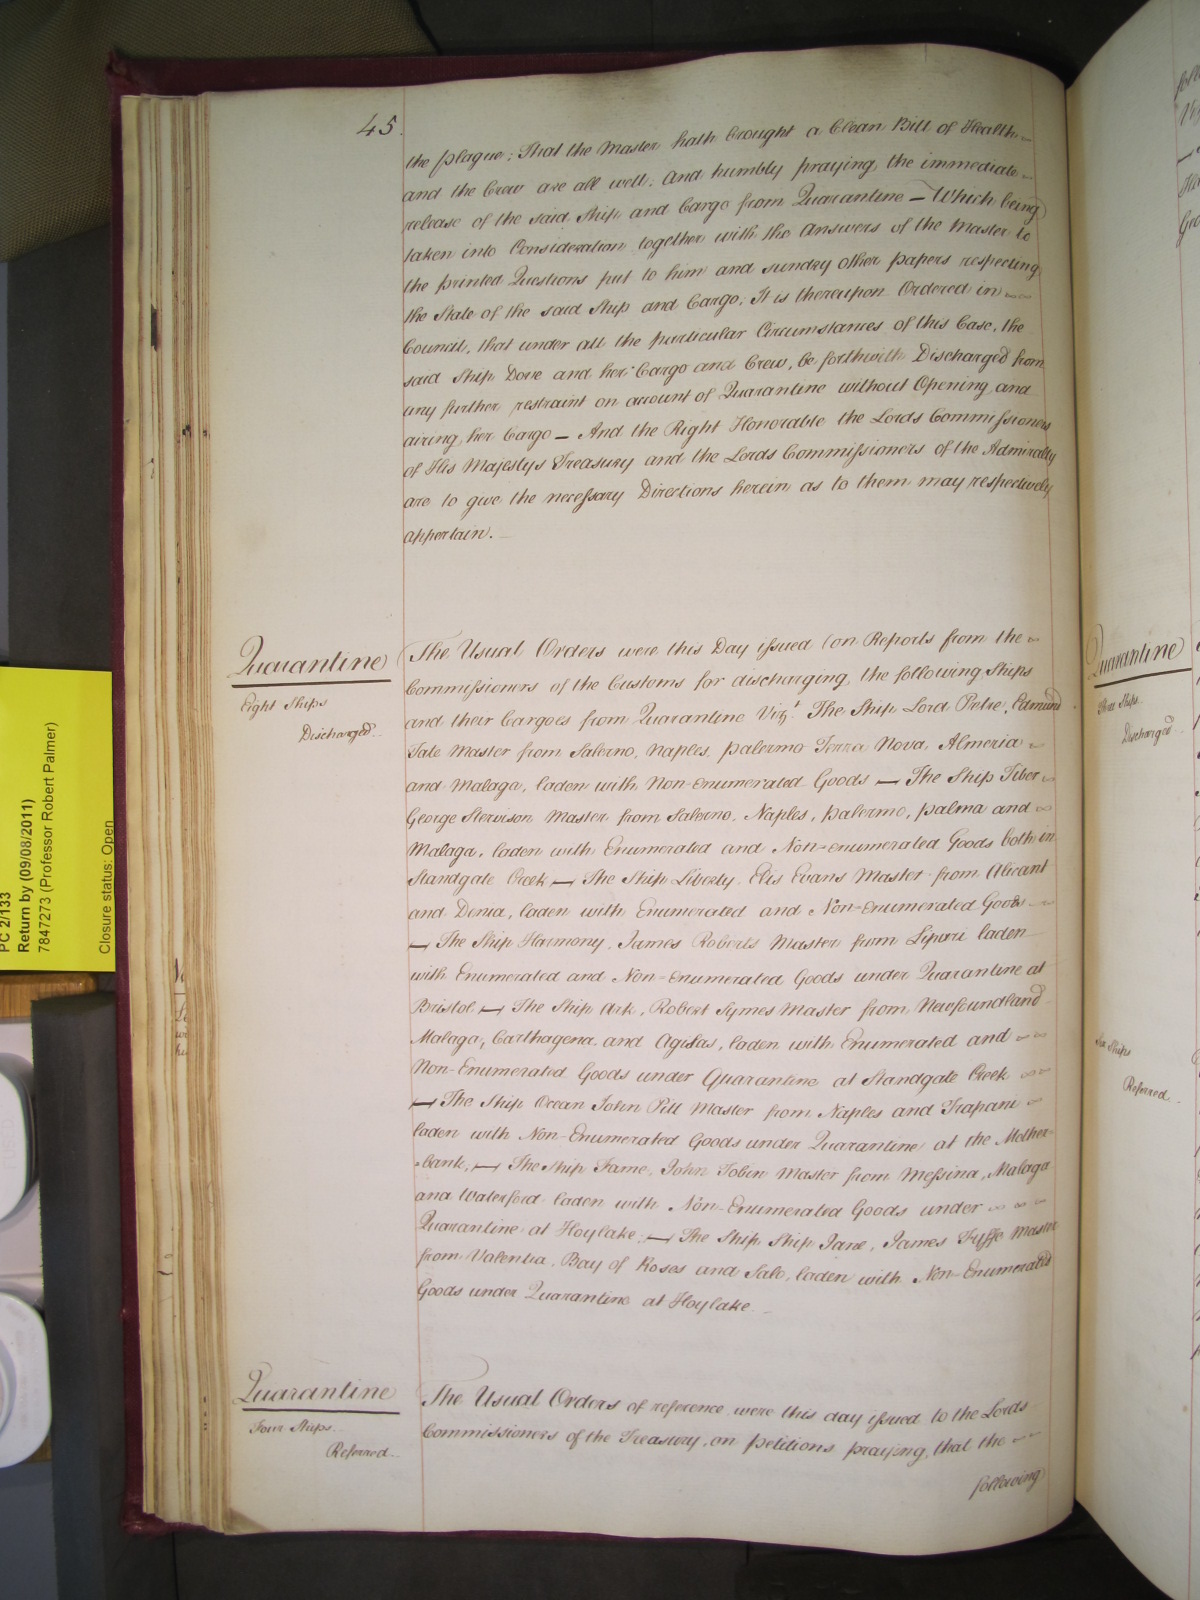 45.
the plague; That the Master hath brought a Clean Bill of Health
and the Crew are all well. And humbly praying the immediate
release of the said Ship and Cargo from Quarantine — Which being
taken into Consideration together with the Answers of the Master to
the printed Questions put to him and sundry other papers respecting
the State of the said Ship and Cargo, It is thereupon Ordered in
Council, that under all the particular Circumstances of this Case, the
said Ship Dove and her Cargo and Crew, be forthwith Discharged from
any further restraint on account of Quarantine without Opening and
airing her Cargo — And the Right Honorable the Lords Commissioners
of His Majestys Treasury and the Lords Commissioners of the Admiralty
are to give the necessary Directions herein as to them may respectively
appertain.
Quarantine
Eight Ships
Discharged
The Usual Orders were this Day issued (on Reports from the
Commissioners of the Customs for discharging the following Ships
and their Cargoes from Quarantine Vizt. The Ship Lord Petre, Edmund
Tate Master from Salerno, Naples, palermo Terra Nova, Almeria
and Malaga, laden with Non-Enumerated Goods — The Ship Tiber
George Stevison Master from Salerno, Naples, palermo, palma and
Malaga, laden with Enumerated and Non-enumerated Goods both in
Standgate Creek — The Ship Liberty Ellis Evans Master from Alicant
and Denia, laden with Enumerated and Non-Enumerated Goods
— The Ship Harmony, James Roberts Master from Lipari laden
with Enumerated and Non-Enumerated Goods under Quarantine at
Bristol — The Ship Ark, Robert Symes Master from Newfoundland
Malaga, Carthagena and Agilas, laden with Enumerated and
Non-Enumerated Goods under Quarantine at Standgate Creek
— The Ship Ocean John Pill Master from Naples and Trapani
laden with Non-Enumerated Goods under Quarantine at the Mother-
bank, — The Ship Fame, John Tobin Master from Messina, Malaga
and Waterford laden with Non-Enumerated Goods under
Quarantine at Hoylake; — The Ship Ship Jane, James Fyffe Master
from Valentia, Bay of Roses and Salo, laden with Non-Enumerated
Goods under Quarantine at Hoylake
Quarantine
Four Ships
Referred
The Usual Orders of reference were this day issued to the Lords
Commissioners of the Treasury, on petitions praying, that the
following
Quarantine
Ships
Discharged
Six Ships
Referred
PC 2/133
Return by (09/08/2011)
7847273 (Professor Robert Palmer)
Closure status: Open